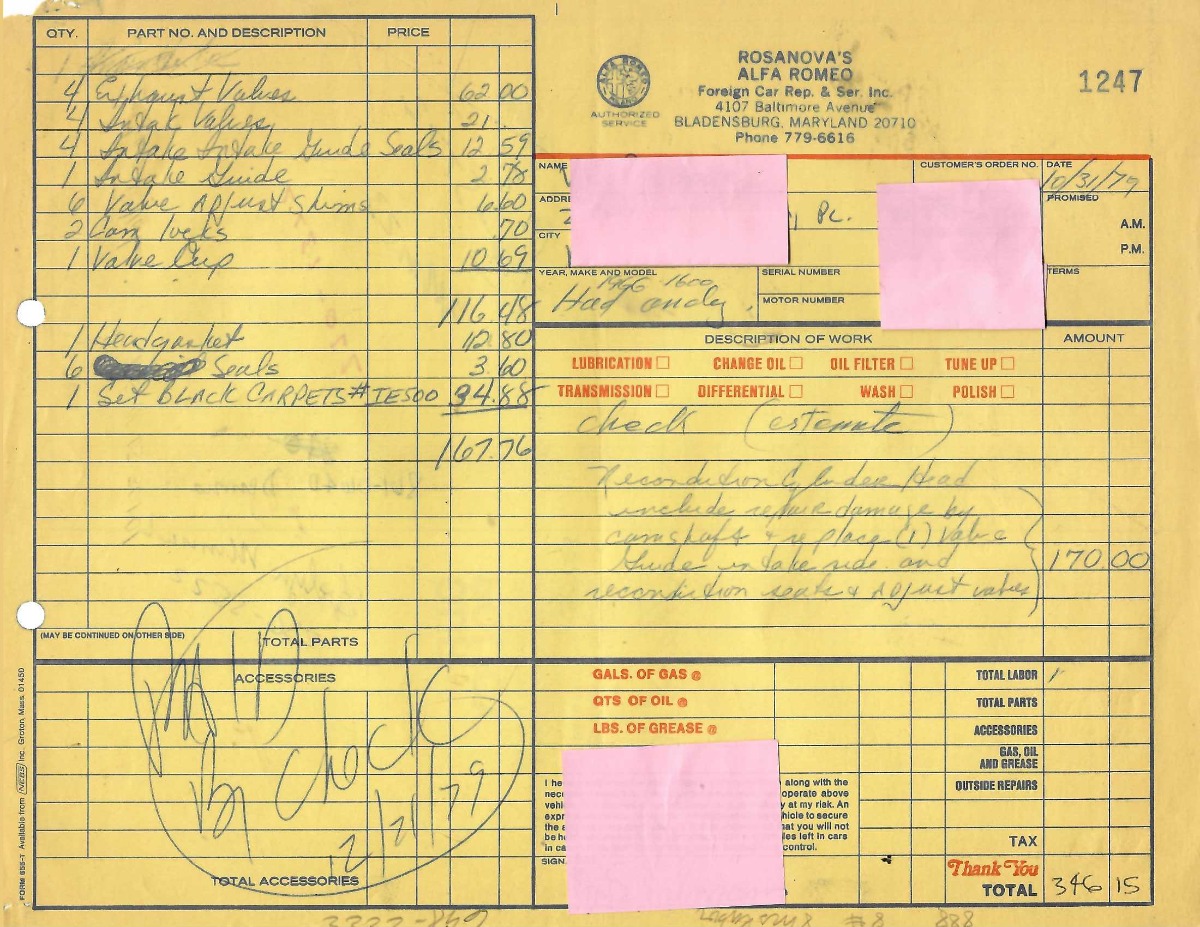 QTY. PART NO. AND DESCRIPTION PRICE
1
4 Exhaust Valves 62 00
4 Intak Valves 21.
4 Intake Intake Guide Seals 12 59
1 Intake Guide 2.78
6 Valve Adjust Shims 6.60
2 Cam locks .70
1 Valve Cup 10 69
116.48
1 Headgasket 12.80
6 Seals 3.60
1 Set BLACK CARPETS # IE500 34.88
167.76
(MAY BE CONTINUED ON OTHER SIDE) TOTAL PARTS
ACCESSORIES
Pd
By Check
12/21/79
TOTAL ACCESSORIES
FORM 656-T Available from NEBS Inc. Groton, Mass. 01450
ALFA ROMEO
AUTHORIZED
SERVICE
ROSANOVA'S
ALFA ROMEO
Foreign Car Rep. & Ser. Inc.
4107 Baltimore Avenue
BLADENSBURG, MARYLAND 20710
Phone 779-6616
1247
NAME CUSTOMER'S ORDER NO. DATE
10/31/79
ADDR PROMISED
Pl.
A.M.
CITY
P.M.
YEAR, MAKE AND MODEL SERIAL NUMBER TERMS
1966 1600
Head only.
MOTOR NUMBER
DESCRIPTION OF WORK AMOUNT
LUBRICATION CHANGE OIL OIL FILTER TUNE UP
TRANSMISSION DIFFERENTIAL WASH POLISH
check (estemate)
Recondition Cylinder Head
include repair damage by
camshaft & replace (1) Valve
Guide intake side and 170.00
recondition seats & Adjust valves
GALS. OF GAS @ TOTAL LABOR
QTS OF OIL @ TOTAL PARTS
LBS. OF GREASE @ ACCESSORIES
GAS, OIL
AND GREASE
OUTSIDE REPAIRS
I he along with the
nec operate above
vehi y at my risk. An
expr hicle to secure
the a hat you will not
be h les left in cars
in ca control.
SIGN
TAX
Thank You
TOTAL 346 15